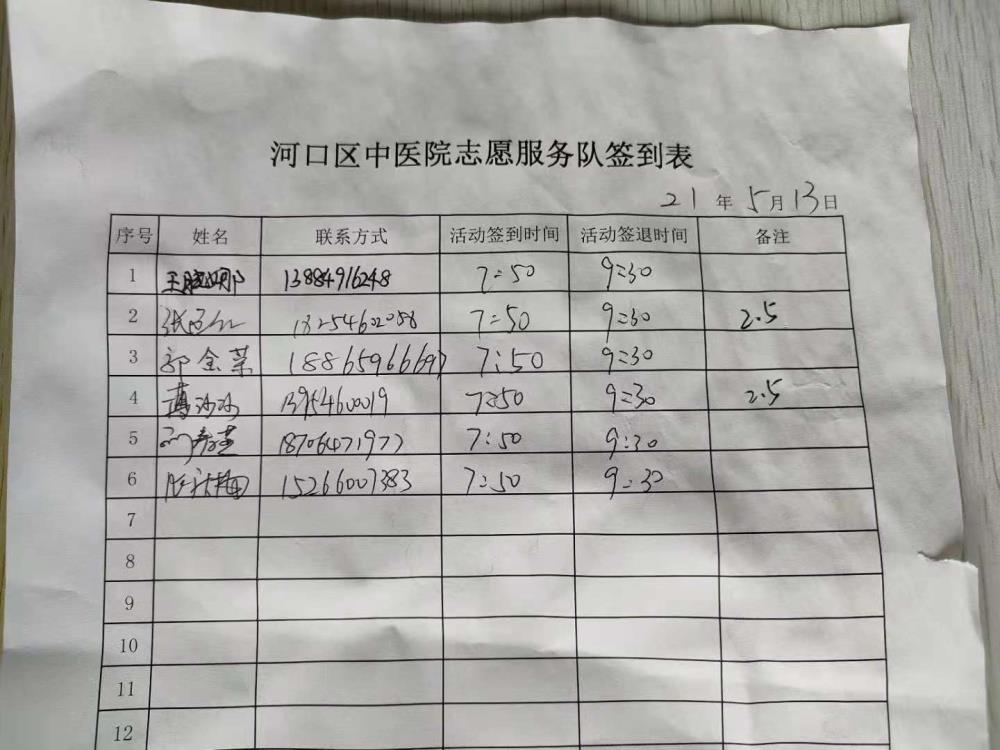 河口区中医院志愿服务队签到表
21年5月13日
序号 姓名 联系方式 活动签到时间 活动签退时间 备注
1 王 13884916248 7:50 9:30
2 张 18254602058 7:50 9:30 2.5
3 郭金荣 18865966697 7:50 9:30
4 薄冰冰 13954600019 7:50 9:30 2.5
5 18706471977 7:50 9:30
6 15266007383 7:50 9:30
7
8
9
10
11
12